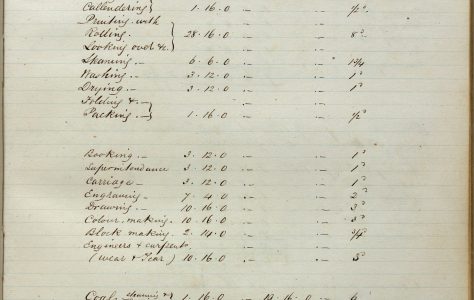 Callendering } 1.16.0 " " ½ᵈ
Printing with
Rolling. } 28.16.0 " " 8ᵈ
Looking over &c.
Skeining. 6.6.0 " " 1¾
Washing. 3.12.0 " " 1ᵈ
Drying. 3.12.0 " " 1ᵈ
Folding & }
Packing. 1.16.0 " " ½ᵈ
Booking. 3.12.0 " " 1ᵈ
Superintendance 3.12.0 " " 1ᵈ
Carriage 3.12.0 " " 1ᵈ
Engraving. 7.4.0 " " 2ᵈ
Drawing. 10.16.0 " " 3ᵈ
Colour making. 10.16.0 " " 3ᵈ
Block making. 2.14.0 " " ¾ᵈ
Engineers &
(wear & Tear) 10.16.0 " " 3ᵈ
Coals 1.16.0